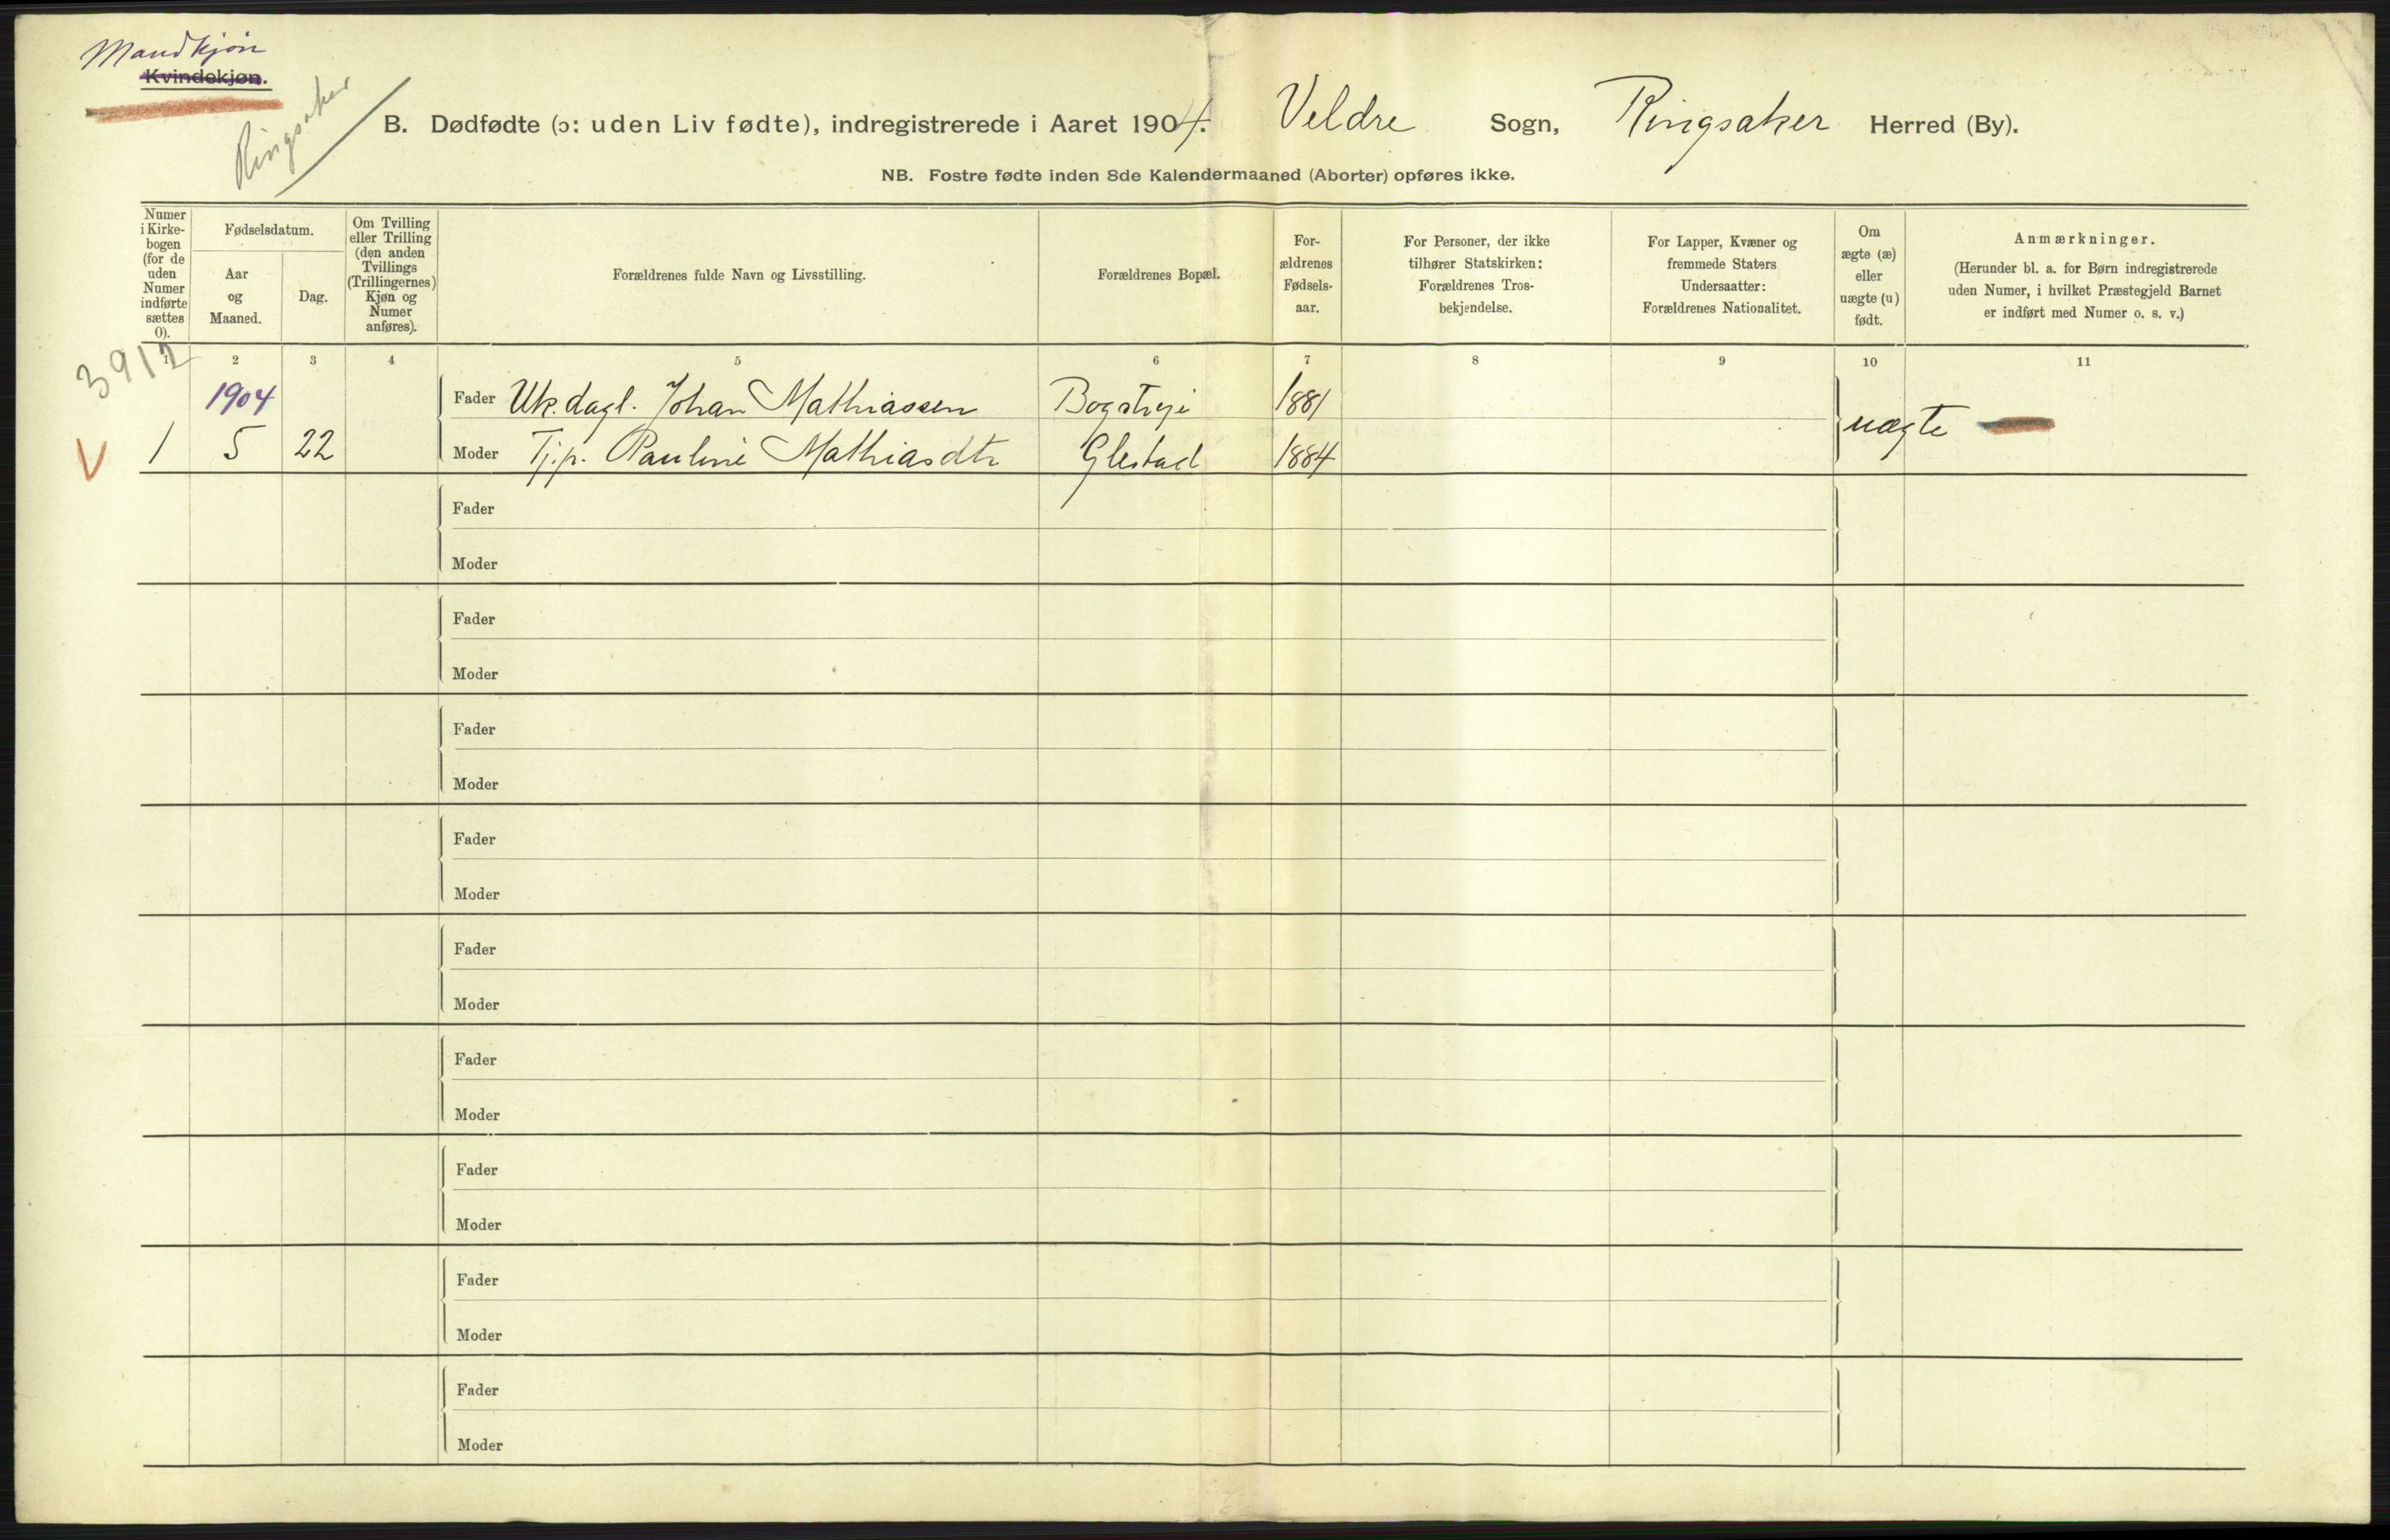 Mandkjøn
Kvindekjøn.
Ringsaker
B. Dødfødte (ɔ: uden Liv fødte), indregistrerede i Aaret 1904. Veldre Sogn, Ringsaker Herred (By).
NB. Fostre fødte inden 8de Kalendermaaned (Aborter) opføres ikke.
Numer
i Kirke-
bogen
(for de
uden
Numer
indførte
sættes
0).
Fødselsdatum.
Aar
og
Maaned.
Dag.
Om Tvilling
eller Trilling
(den anden
Tvillings
(Trillingernes)
Kjøn og
Numer
anføres).
Forældrenes fulde Navn og Livsstilling.
Forældrenes Bopæl.
For-
ældrenes
Fødsels-
aar.
For Personer, der ikke
tilhører Statskirken:
Forældrenes Tros-
bekjendelse.
For Lapper, Kvæner og
fremmede Staters
Undersaatter:
Forældrenes Nationalitet.
Om
ægte (æ)
eller
uægte (u)
født.
Anmærkninger.
(Herunder bl. a. for Børn indregistrerede
uden Numer, i hvilket Præstegjeld Barnet
er indført med Numer o. s. v.)
3912
1 2 3 4 5 6 7 8 9 10 11
1904 Fader Uk. dagl. Johan Mathiassen 1881
uægte
V 1 5 22 Moder Tj.p. Pauline Mathiasdtr Glestad 1884
Fader
Moder
Fader
Moder
Fader
Moder
Fader
Moder
Fader
Moder
Fader
Moder
Fader
Moder
Fader
Moder
Fader
Moder